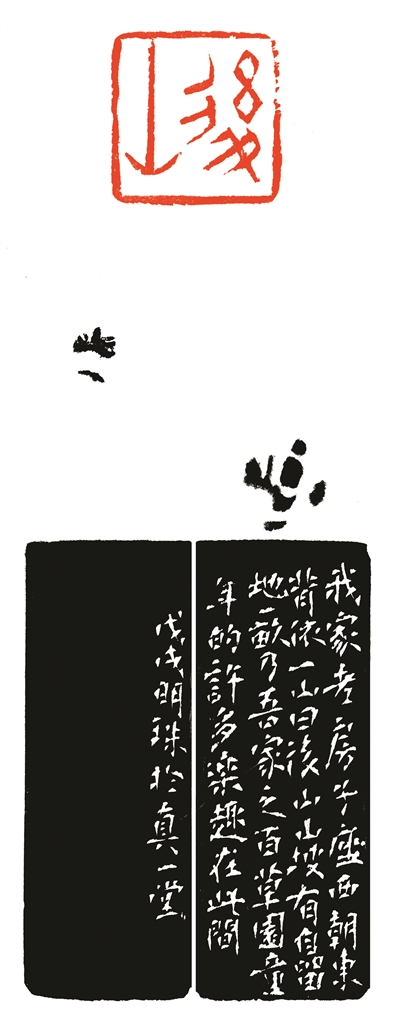 後山
我家老房子座西朝東
背依一山曰後山山坡有自留
地一畝乃吾家之百草園童
年的許多樂趣在此間
戊戌明珠於真一堂